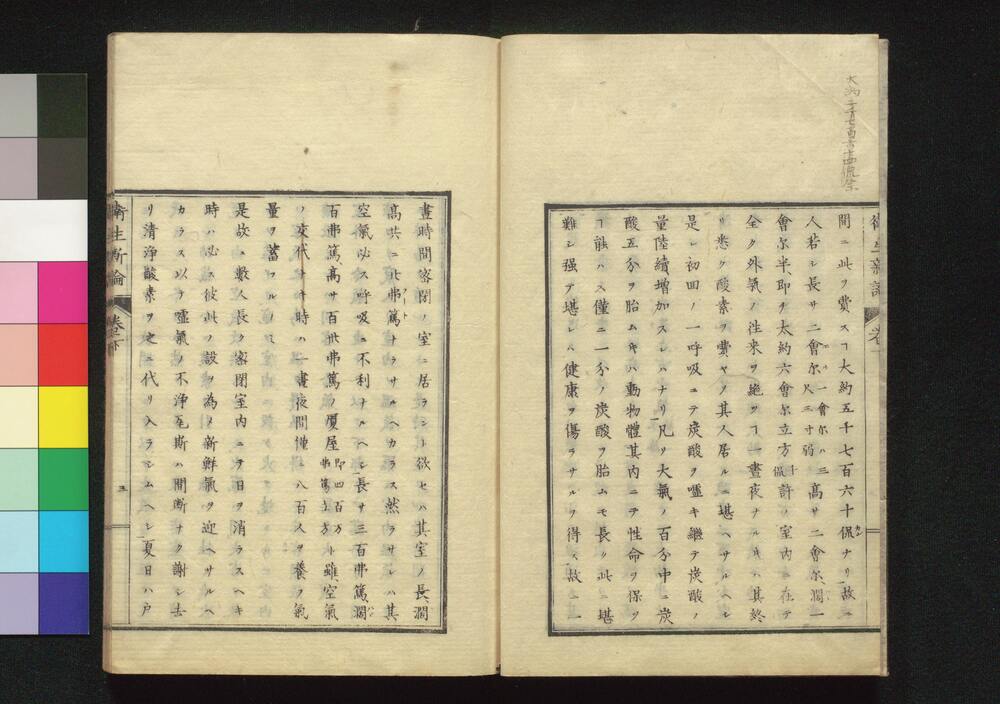 間ニ此ヲ費スヿ大約五千七百六十侃ナリ故ニ
人若シ長サ二會尓一會尓ハ三尺三寸弱高サ二會尓濶一
會尓半即チ大約六會尓立方許ノ室内ニ在テ
全ク外氣ノ往来ヲ絶ツヿ一晝夜ナルキハ其終
リ悉ク酸素ヲ費ヤシ其人居ルニ堪ヘサルヘシ
是レ初回ノ一呼吸ニテ炭酸ヲ嘘キ継テ炭酸ノ
量陸續増加スレハナリ凡ソ大氣ノ百分中ニ炭
酸五分ヲ胎ムキハ動物體其内ニテ性命ヲ保ツ
ヿ能ハス僅ニ一分ノ炭酸ヲ胎ムモ長ク此ニ堪
難シ强テ堪レハ健康ヲ傷ラサルヲ得ス故ニ一
晝時間密閉ノ室ニ居ラント欲セハ其室ノ長濶
高共ニ此弗篤ナラサルヘカラス然ラサレハ其
空氣必ス呼吸ニ不利ナルヘシ長サ三百弗篤濶
百弗篤高サ百此弗篤ノ厦屋即四百万弗篤立方ト雖空氣
ノ交代ナキ時ハ一晝夜間僅ニ八百人ヲ養フ氣
量ヲ蓄フルノミ
是故ニ數人長ク密閉室内ニテ日ヲ消ラスヘキ
時ハ必ス彼此ノ設ヲ為メ新鮮氣ヲ迎ヘサルヘ
カラス以テ嘘氣ノ不浄瓦斯ハ間断ナク謝シ去
リ清浄酸素ヲ之ニ代リ入ラシムヘシ夏日ハ戸
衛生新論 巻之下 三